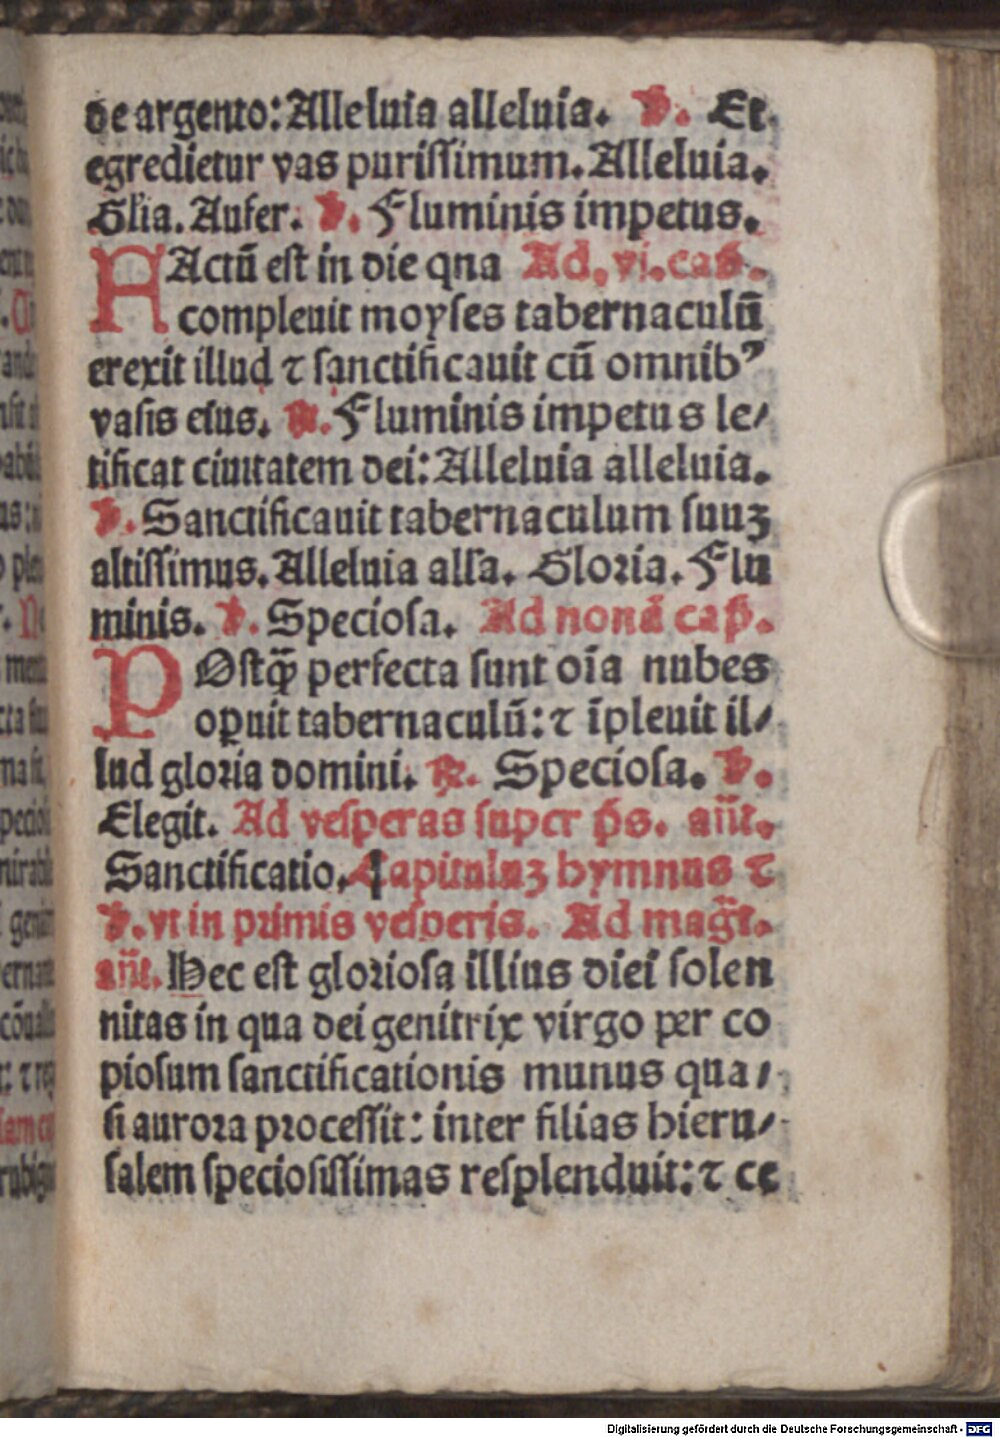 de argento: Alleluia alleluia. V. Et
egredietur vas purissimum. Alleluia.
Glia. Aufer. V. Fluminis impetus.
FActū est in die qna Ad. vi. cap̄.
compleuit moyses tabernaculū
erexit illud ⁊ sanctificauit cū omnibꝰ
vasis eius. R. Fluminis impetus le/
tificat ciuitatem dei: Alleluia alleluia.
V. Sanctificauit tabernaculum suuꝫ
altissimus. Alleluia alla. Gloria. Flu
minis. V. Speciosa. Ad nonā cap̄.
POstꝙ̄ perfecta sunt oīa nubes
oꝑuit tabernaculū: ⁊ īpleuit il/
lud gloria domini. ℞. Speciosa. V.
Elegit. Ad vesperas super p̄s. an̄t.
Sanctificatio. Capituluꝫ hymnus ⁊
V. vt in primis vesperis. Ad magt̄.
an̄t. Hec est gloriosa illius diei solen
nitas in qua dei genitrix virgo per co
piosum sanctificationis munus qua/
si aurora processit: inter filias hieru/
salem speciosissimas resplenduit: ⁊ ce
Digitalisierung gefördert durch die Deutsche Forschungsgemeinschaft - DFG